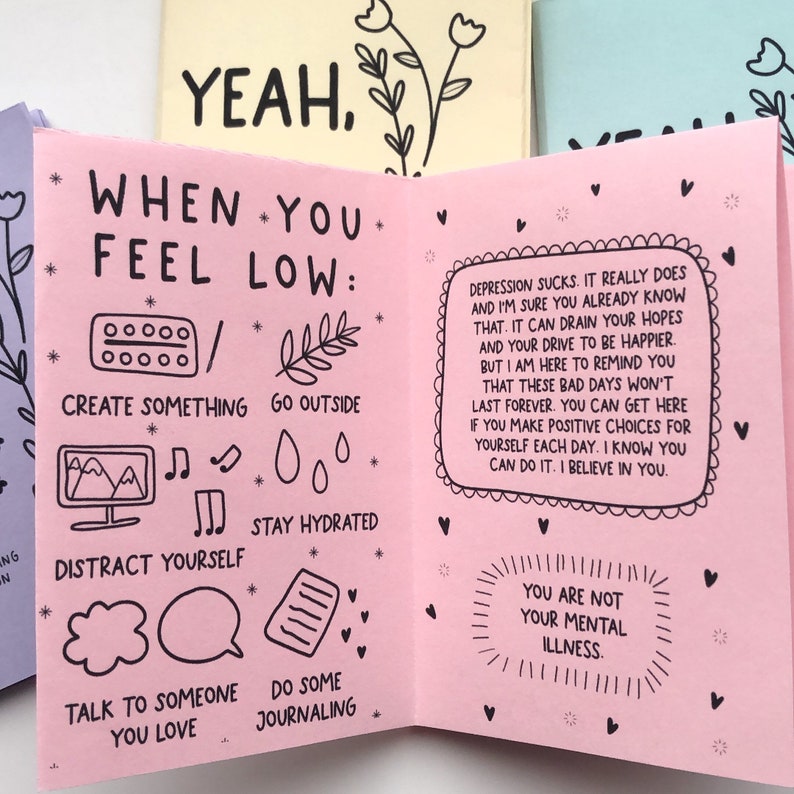 YEAH,
WHEN YOU
FEEL LOW:
CREATE SOMETHING
GO OUTSIDE
DISTRACT YOURSELF
STAY HYDRATED
TALK TO SOMEONE
YOU LOVE
DO SOME
JOURNALING
DEPRESSION SUCKS. IT REALLY DOES
AND I'M SURE YOU ALREADY KNOW
THAT. IT CAN DRAIN YOUR HOPES
AND YOUR DRIVE TO BE HAPPIER.
BUT I AM HERE TO REMIND YOU
THAT THESE BAD DAYS WON'T
LAST FOREVER. YOU CAN GET HERE
IF YOU MAKE POSITIVE CHOICES FOR
YOURSELF EACH DAY. I KNOW YOU
CAN DO IT. I BELIEVE IN YOU.
YOU ARE NOT
YOUR MENTAL
ILLNESS.